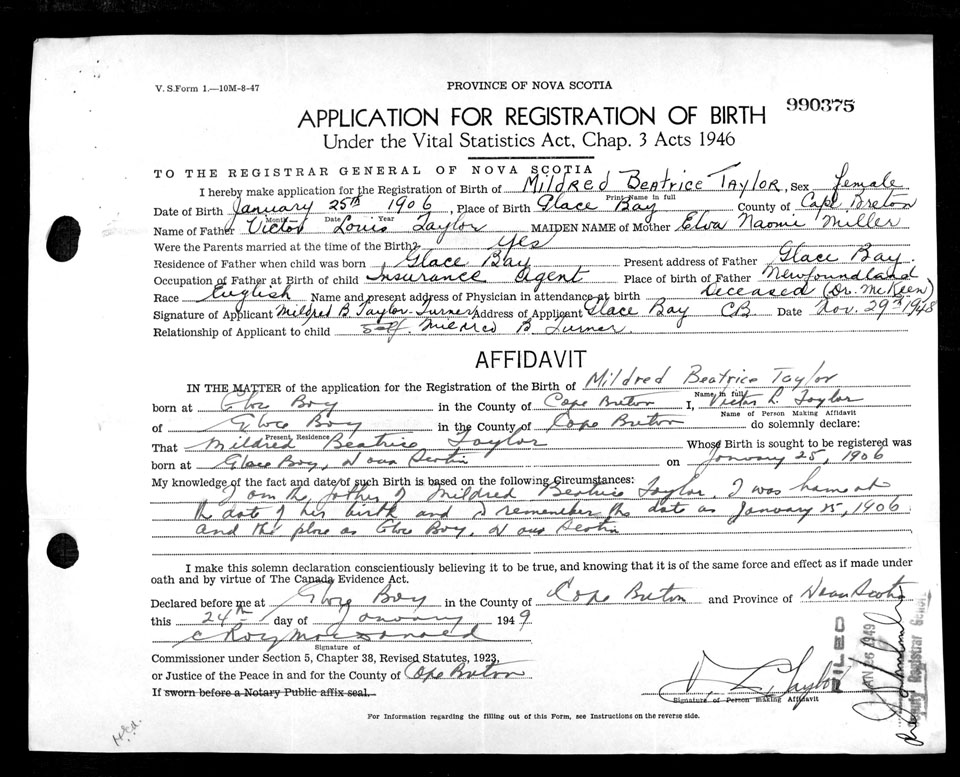 V. S. Form 1.—10M-8-47
PROVINCE OF NOVA SCOTIA
990375
APPLICATION FOR REGISTRATION OF BIRTH
Under the Vital Statistics Act, Chap. 3 Acts 1946
TO THE REGISTRAR GENERAL OF NOVA SCOTIA
I hereby make application for the Registration of Birth of Mildred Beatrice Taylor, Sex female
Print Name in full
Date of Birth January 25th 1906, Place of Birth Glace Bay County of Cape Breton
Month Date Year
Name of Father Victor Louis Taylor MAIDEN NAME of Mother Elva Naomi Miller
Were the Parents married at the time of the Birth? yes
Residence of Father when child was born Glace Bay Present address of Father Glace Bay.
Occupation of Father at Birth of child Insurance Agent Place of birth of Father Newfoundland
Race English Name and present address of Physician in attendance at birth Deceased (Dr. McKeen)
Signature of Applicant Mildred B Taylor-Turner Address of Applicant Glace Bay CB Date Nov. 29th 1948
Relationship of Applicant to child self. Mildred B. Turner.
AFFIDAVIT
IN THE MATTER of the application for the Registration of the Birth of Mildred Beatrice Taylor
Name in full
born at Glace Bay in the County of Cape Breton I, Victor L. Taylor
Name of Person Making Affidavit
of Glace Bay in the County of Cape Breton do solemnly declare:
Present Residence
That Mildred Beatrice Taylor Whose Birth is sought to be registered was
born at Glace Bay, Nova Scotia on January 25, 1906
My knowledge of the fact and date of such Birth is based on the following Circumstances:
I am the father of Mildred Beatrice Taylor. I was home at
the date of her birth and I remember the date as January 25, 1906
and the place as Glace Bay, Nova Scotia
I make this solemn declaration conscientiously believing it to be true, and knowing that it is of the same force and effect as if made under
oath and by virtue of The Canada Evidence Act.
Declared before me at Glace Bay in the County of Cape Breton and Province of Nova Scotia
this 24th day of January 1949
Signature of
Commissioner under Section 5, Chapter 38, Revised Statutes, 1923,
or Justice of the Peace in and for the County of Cape Breton
If sworn before a Notary Public affix seal.
V L Taylor
Signature of Person Making Affidavit
FILED
JAN 26 1949
Deputy Registrar General
For Information regarding the filling out of this Form, see Instructions on the reverse side.